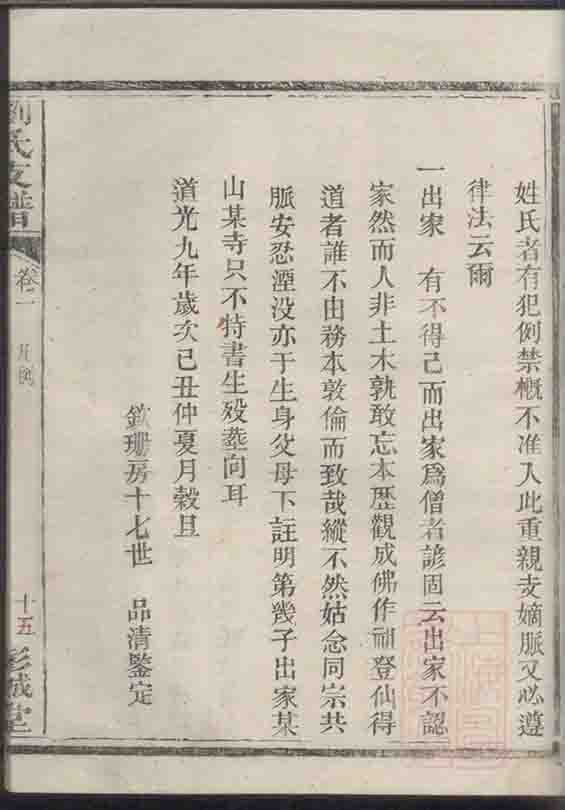 姓氏者有犯例禁概不准入此重親支嫡脈又必遵
律法云爾
一出家　有不得已而出家爲僧者諺固云出家不認
家然而人非土木孰敢忘本歷觀成佛作祖登仙得
道者誰不由務本敦倫而致哉縱不然姑念同宗共
脈安忍湮没亦于生身父母下註明第幾子出家某
山某寺只不特書生殁塟向耳
道光九年歲次己丑仲夏月穀旦
欽珊房十七世　品清鑒定
劉氏支譜
卷一　凡例
十五　彭城堂